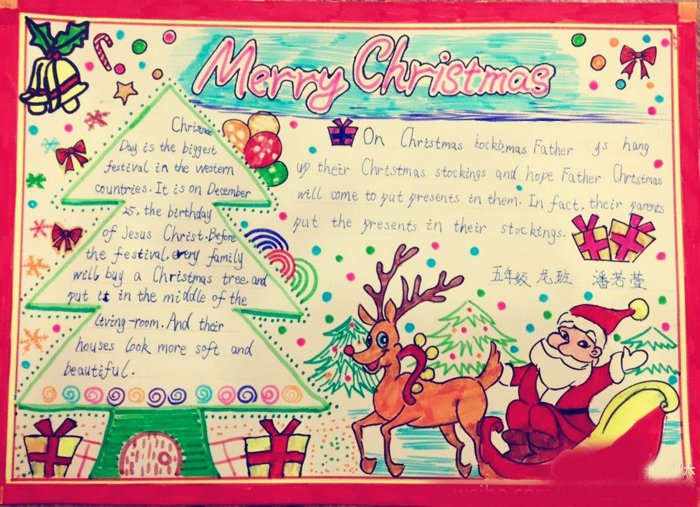 Merry Christmas
Christmas
Day is the biggest
festival in the western
countries. It is on December
25, the birthday
of Jesus Christ. Before
the festival, every family
will buy a Christmas tree and
put it in the middle of the
living-room. And their
houses look more soft and
beautiful.
On Christmas Father ys hang
up their Christmas stockings and hope Father Christmas
will come to put presents in them. In fact, their parents
put the presents in their stockings.
五年级 龙班 潘若萱
weibo.com/